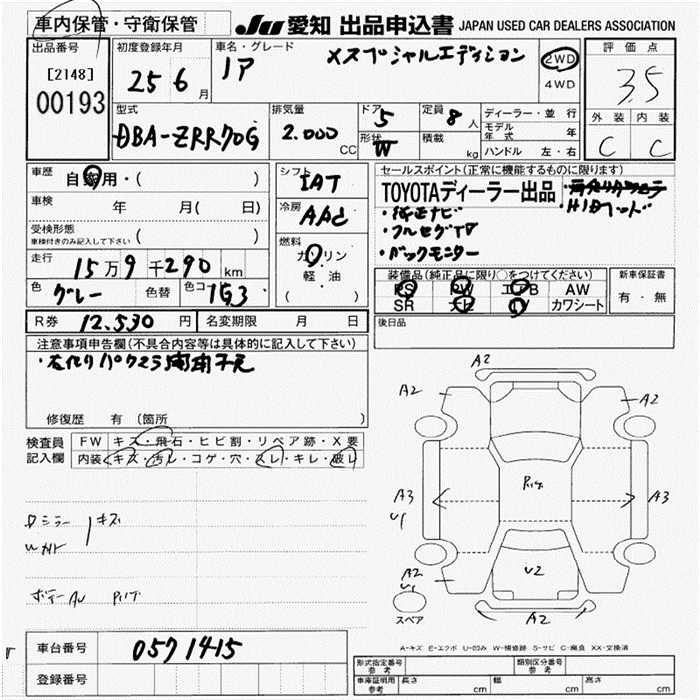 車内保管・守衛保管
JU 愛知 出品申込書 JAPAN USED CAR DEALERS ASSOCIATION
出品番号
[2148]
00193
初度登録年月
25 6 月
車名・グレード
ノア
Xスペシャルエディション
2WD
4WD
評価点
3.5
外装 内装
C C
型式
DBA-ZRR70G
排気量
2.000 CC
ドア
5
形状
W
定員
8 人
積載
kg
ディーラー・並行
モデル年式 年
ハンドル 左・右
車歴 自家用・( )
車検 年 月( 日)
受検形態
車検付きのみ記入して下さい ( )
走行 15万9千290 km
色 グレー 色替 色コード 1G3
シフト
IAT
冷房
AAC
燃料
ガソリン
軽・油
( )
セールスポイント(正常に機能するものに限ります)
TOYOTAディーラー出品
・純正ナビ
・フルセグTV
・バックモニター
装備品(純正品に限り○をつけてください)
PS PW エアB AW
SR ナビ TV カワシート
新車保証書
有・無
R券 12.530 円 名変期限 月 日
後日品
注意事項申告欄(不具合内容等は具体的に記入して下さい)
修復歴 有(箇所 )
検査員記入欄
FW キズ・飛石・ヒビ割・リペア跡・X要
内装 キズ・汚レ・コゲ・穴・スレ・キレ・破レ
Dミラー キズ
ボデー
A2
A2
A2
A3
U1
A3
A2
U1
U2
A2
スペア
A-キズ E-エクボ U-凹み W-補修跡 S-サビ C-腐食 XX-交換済
車台番号 0571415
登録番号
形式指定番号 参考
類別区分番号 参考
車庫証明用 参考
長さ cm 幅 cm 高さ cm